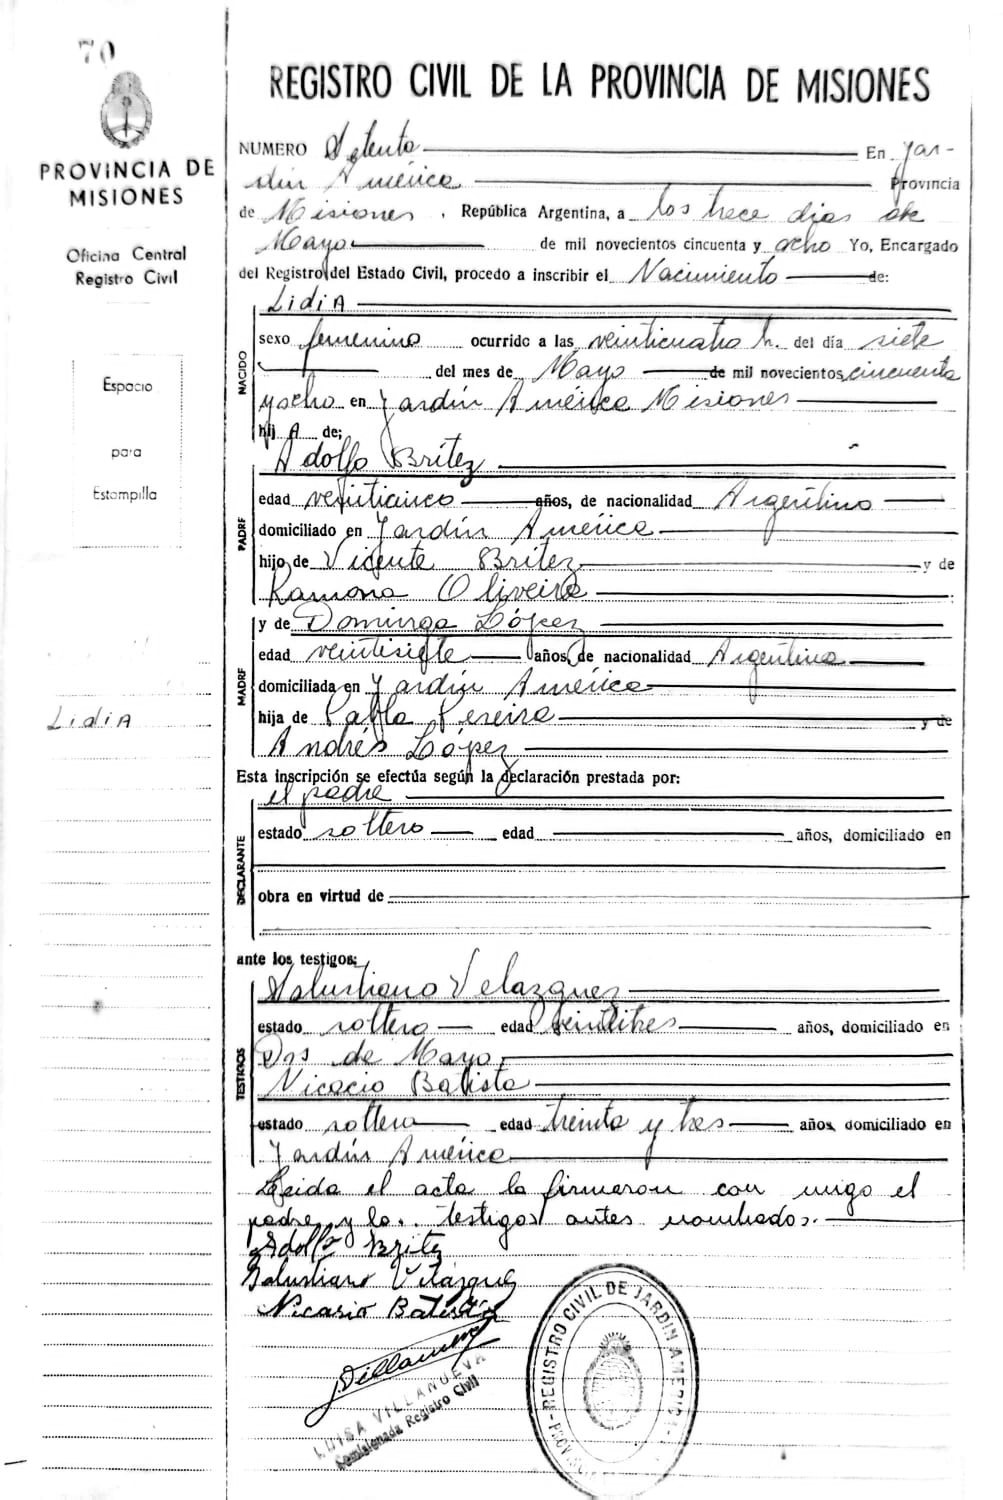 70
PROVINCIA DE
MISIONES
Oficina Central
Registro Civil
Espacio
para
Estampilla
Lidia
REGISTRO CIVIL DE LA PROVINCIA DE MISIONES
NUMERO Setenta En Jar-
dín América Provincia
de Misiones , República Argentina, a los trece días de
Mayo de mil novecientos cincuenta y ocho Yo, Encargado
del Registro del Estado Civil, procedo a inscribir el Nacimiento de:
NACIDO
Lidia
sexo femenino ocurrido a las veinticuatro h. del día siete
del mes de Mayo de mil novecientos cincuenta
y ocho en Jardín América Misiones
hij A de;
PADRE
Adolfo Brítez
edad veinticinco años, de nacionalidad Argentino
domiciliado en Jardín América
hijo de Vicente Brítez y de
Ramona Oliveira
MADRE
y de Dominga López
edad veintisiete años, de nacionalidad Argentina
domiciliada en Jardín América
hija de Pabla Pereira y de
Andrés López
Esta inscripción se efectúa según la declaración prestada por:
DECLARANTE
el padre
estado soltero edad años, domiciliado en
obra en virtud de
ante los testigos:
TESTIGOS
Salustiano Velazquez
estado soltero edad veintitres años, domiciliado en
Dos de Mayo
Nicacio Batista
estado soltero edad treinta y tres años, domiciliado en
Jardín América
Leida el acta la firmaron con migo el
padre y lo.. testigos antes nombrados.
Adolfo Britez
Salustiano Velázquez
Nicasio Batista
LUISA VILLANUEVA
Comisionada Registro Civil
REGISTRO CIVIL DE JARDIN AMERICA